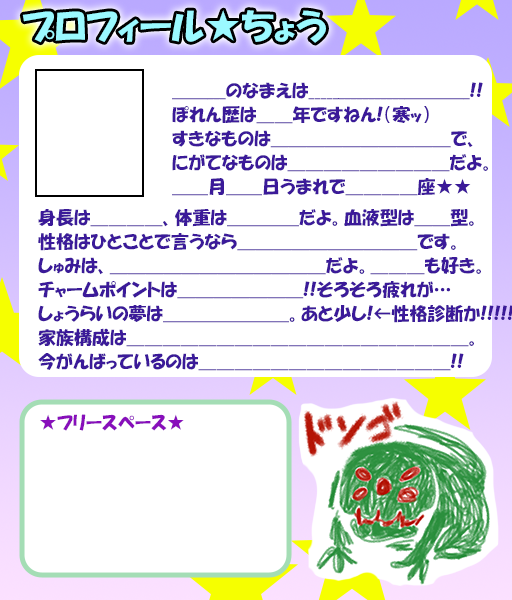 プロフィール★ちょう
______のなまえは__________________!!
ぽれん歴は____年ですねん!(寒ッ)
すきなものは____________________で、
にがてなものは__________________だよ。
____月____日うまれで________座★★
身長は________、体重は________だよ。血液型は____型。
性格はひとことで言うなら____________________です。
しゅみは、________________________だよ。______も好き。
チャームポイントは______________!!そろそろ疲れが…
しょうらいの夢は______________。あと少し!←性格診断か!!!!!
家族構成は______________________________________。
今がんばっているのは____________________________!!
★フリースペース★
ドンゴ